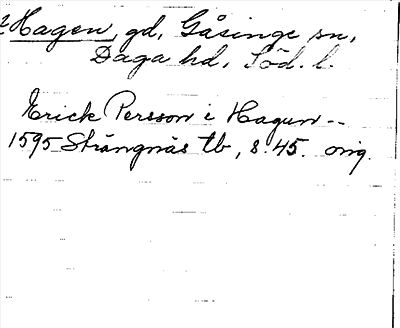 2 Hagen, gd, Gåsinge sn,
Daga hd. Söd. l.
Erick Persson i Hagun--
1595 Strängnäs tb, s. 45. orig.